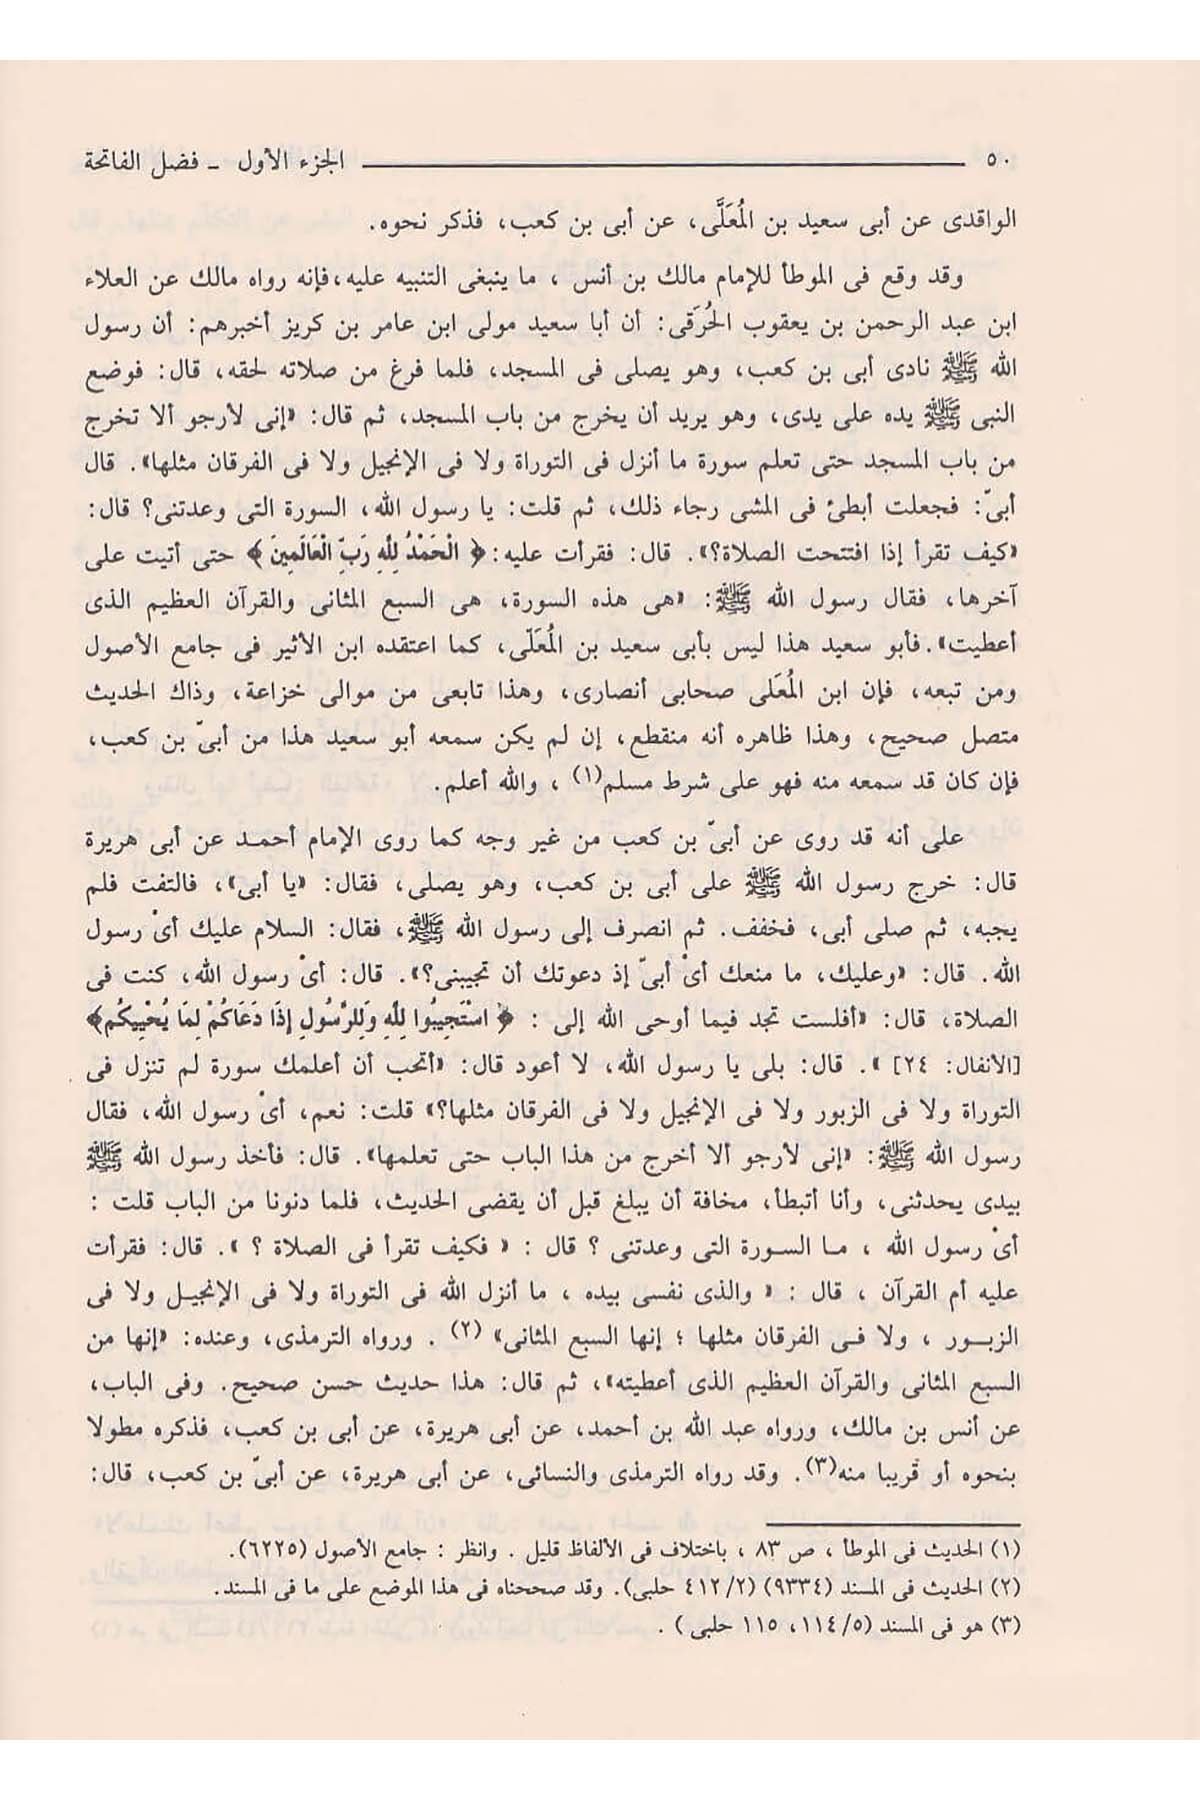 ٥٠ الجزء الأول - فضل الفاتحة
الواقدى عن أبى سعيد بن المُعَلَّى، عن أبى بن كعب، فذكر نحوه.
وقد وقع فى الموطأ للإمام مالك بن أنس ، ما ينبغى التنبيه عليه،فإنه رواه مالك عن العلاء
ابن عبد الرحمن بن يعقوب الحُرَقى: أن أبا سعيد مولى ابن عامر بن كريز أخبرهم: أن رسول
الله ﷺ نادى أبى بن كعب، وهو يصلى فى المسجد، فلما فرغ من صلاته لحقه، قال: فوضع
النبى ﷺ يده على يدى، وهو يريد أن يخرج من باب المسجد، ثم قال: «إنى لأرجو ألا تخرج
من باب المسجد حتى تعلم سورة ما أنزل فى التوراة ولا فى الإنجيل ولا فى الفرقان مثلها». قال
أبىّ: فجعلت أبطئ فى المشى رجاء ذلك، ثم قلت: يا رسول الله، السورة التى وعدتنى؟ قال:
«كيف تقرأ إذا افتتحت الصلاة؟». قال: فقرأت عليه: ﴿ الْحَمْدُ لِلَّهِ رَبِّ الْعَالَمِينَ ﴾ حتى أتيت على
آخرها، فقال رسول الله ﷺ: «هى هذه السورة، هى السبع المثانى والقرآن العظيم الذى
أعطيت».فأبو سعيد هذا ليس بأبى سعيد بن المُعَلّى، كما اعتقده ابن الأثير فى جامع الأصول
ومن تبعه، فإن ابن المُعَلى صحابى أنصارى، وهذا تابعى من موالى خزاعة، وذاك الحديث
متصل صحيح، وهذا ظاهره أنه منقطع، إن لم يكن سمعه أبو سعيد هذا من أبىّ بن كعب،
فإن كان قد سمعه منه فهو على شرط مسلم(١) ، والله أعلم.
على أنه قد روى عن أبىّ بن كعب من غير وجه كما روى الإمام أحمد عن أبى هريرة
قال: خرج رسول الله ﷺ على أبى بن كعب، وهو يصلى، فقال: «يا أبى»، فالتفت فلم
يجبه، ثم صلى أبى، فخفف. ثم انصرف إلى رسول الله ﷺ، فقال: السلام عليك أىْ رسول
الله. قال: «وعليك، ما منعك أىْ أبىّ إذ دعوتك أن تجيبنى؟». قال: أىْ رسول الله، كنت فى
الصلاة، قال: «أفلست تجد فيما أوحى الله إلى : ﴿ اسْتَجِيبُوا لِلَّهِ وَلِلرَّسُولِ إِذَا دَعَاكُمْ لِمَا يُحْيِيكُم﴾
[الأنفال: ٢٤] ». قال: بلى يا رسول الله، لا أعود قال: «أتحب أن أعلمك سورة لم تنزل فى
التوراة ولا فى الزبور ولا فى الإنجيل ولا فى الفرقان مثلها؟» قلت: نعم، أىْ رسول الله، فقال
رسول الله ﷺ: «إنى لأرجو ألا أخرج من هذا الباب حتى تعلمها». قال: فأخذ رسول الله ﷺ
بيدى يحدثنى، وأنا أتبطأ، مخافة أن يبلغ قبل أن يقضى الحديث، فلما دنونا من الباب قلت :
أىْ رسول الله ، ما السورة التى وعدتنى ؟ قال : « فكيف تقرأ فى الصلاة ؟ ». قال: فقرأت
عليه أم القرآن ، قال : « والذى نفسى بيده ، ما أنزل الله فى التوراة ولا فى الإنجيل ولا فى
الزبور ، ولا فى الفرقان مثلها ؛ إنها السبع المثانى» (٢) . ورواه الترمذى، وعنده: «إنها من
السبع المثانى والقرآن العظيم الذى أعطيته»، ثم قال: هذا حديث حسن صحيح. وفى الباب،
عن أنس بن مالك، ورواه عبد الله بن أحمد، عن أبى هريرة، عن أبى بن كعب، فذكره مطولا
بنحوه أو قريبا منه(٣). وقد رواه الترمذى والنسائى، عن أبى هريرة، عن أبىّ بن كعب، قال:
(١) الحديث فى الموطأ ، ص ٨٣ ، باختلاف فى الألفاظ قليل . وانظر : جامع الأصول (٦٢٢٥).
(٢) الحديث فى المسند (٩٣٣٤) (٤١٢/٢ حلبى). وقد صححناه فى هذا الموضع على ما فى المسند.
(٣) هو فى المسند (١١٤/٥، ١١٥ حلبى ) .